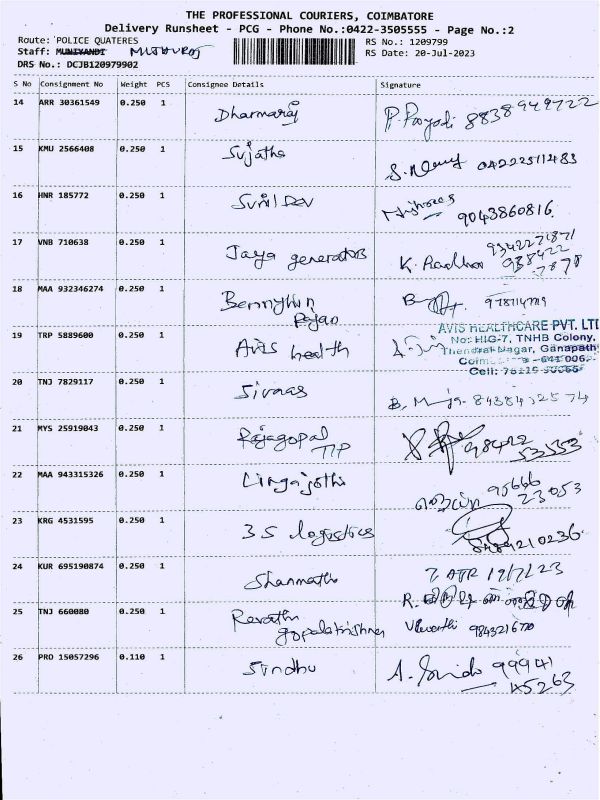 THE PROFESSIONAL COURIERS, COIMBATORE
Delivery Runsheet - PCG - Phone No.:0422-3505555 - Page No.:2
Route: POLICE QUATERES RS No.: 1209799
Staff: MUNIYANDI RS Date: 20-Jul-2023
DRS No.: DCJB120979902
S No Consignment No Weight PCS Consignee Details Signature
14 ARR 30361549 0.250 1 Dharmaraj 8838949722
15 KMU 2566408 0.250 1 Sujatha 04222511483
16 HNR 185772 0.250 1 Sunil Dev 9043860816
17 VNB 710638 0.250 1 Jaya generators K. Radha
18 MAA 932346274 0.250 1
Rajan
AVIS HEALTHCARE PVT. LTD
19 TRP 5889600 0.250 1 Avis health No: HIG-7, TNHB Colony,
Thendral Nagar, Ganapath
641 006
Cell:
20 TNJ 7829117 0.250 1 Sivaas B.
21 MYS 25919043 0.250 1 Rajagopal 98422
TIP 53553
22 MAA 943315326 0.250 1 Lingajothi 95666
23053
23 KRG 4531595 0.250 1 3S logistics 8489210236
24 KUR 695190874 0.250 1 Shanmathi 19/7/23
R.
25 TNJ 660080 0.250 1 Revathi
gopalakrishnan
26 PRO 15057296 0.110 1 Sindhu 99941
45263